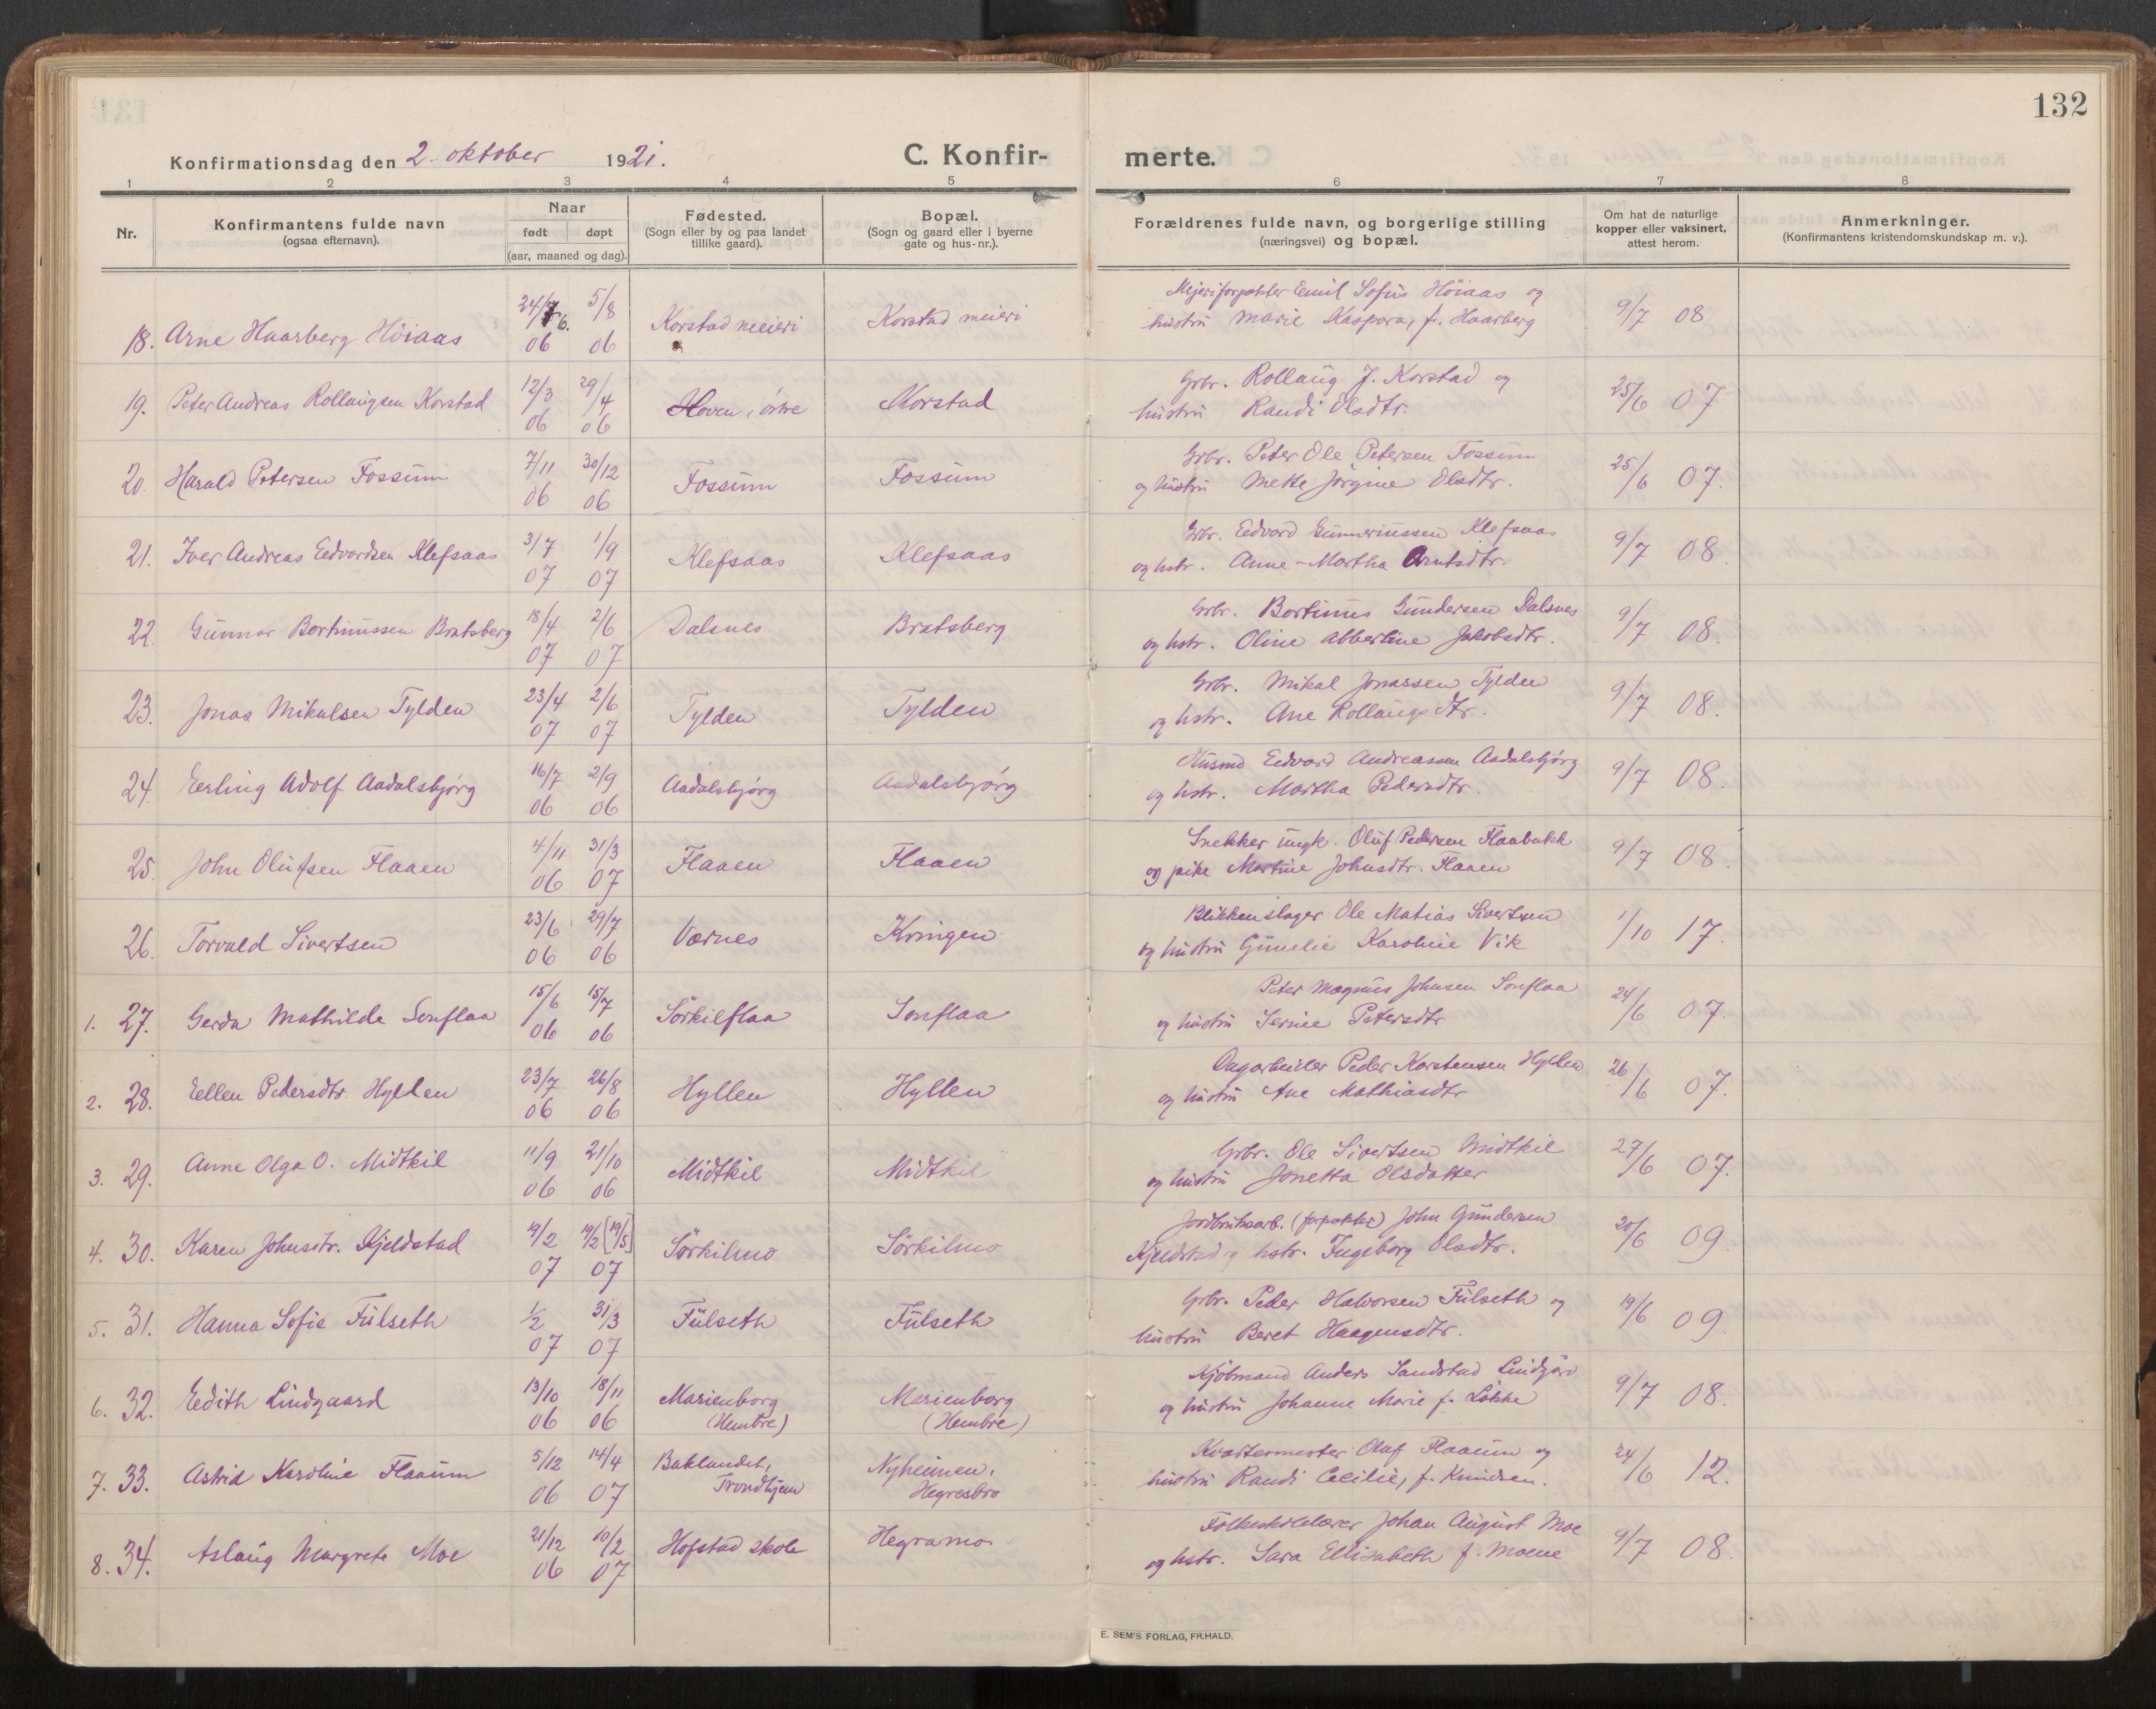 132
Konfirmationsdag den 2. oktober 1921.
C. Konfir-merte.
1 2 3 4 5 6 7 8
Nr.
Konfirmantens fulde navn
(ogsaa efternavn).
Naar
født døpt
(aar, maaned og dag).
Fødested.
(Sogn eller by og paa landet
tillike gaard).
Bopæl.
(Sogn og gaard eller i byerne
gate og hus-nr.).
Forældrenes fulde navn, og borgerlige stilling
(næringsvei) og bopæl.
Om hat de naturlige
kopper eller vaksinert,
attest herom.
Anmerkninger.
(Konfirmantens kristendomskundskap m. v.).
24/ 6. 5/8 Mejeriforpakter Emil Sofus Höiaas og
18. Arne Haarberg Höiaas 06 06 Korstad meieri Korstad meieri hustru Marie Kaspara, f. Haarberg 9/7 08
12/3 29/4 Grbr. Rollaug J. Korstad og
19. Peter Andreas Rollaugsen Korstad 06 06 Hoven, östre Korstad hustru Randi Olsdtr. 25/6 07
7/11 30/12 Grbr. Peter Ole Petersen Fossum
20. Harald Petersen Fossum 06 06 Fossum Fossum og hustru Mette Jörgine Olsdtr. 25/6 07.
3/7 1/9 Grbr. Edvard Gunneriussen Klefsaas
21. Iver Andreas Edvardsen Klefsaas 07 07 Klefsaas Klefsaas og hstr. Anne-Martha Arntsdtr. 9/7 08.
18/4 2/6 Grbr. Bortinus Gundersen Dalsnes
22. Gunnar Bortinussen Bratsberg 07 07 Dalsnes Bratsberg og hstr. Oline Abbertine Jakobsdtr. 9/7 08.
23/4 2/6 Grbr. Mikal Jonassen Tylden
23. Jonas Mikalsen Tylden 07 07 Tylden Tylden og hstr. Ane Rollaugsdtr. 9/7 08.
16/7 2/9 Husmd Edvard Andreassen Aadalsbjørg
24. Erling Adolf Aadalsbjørg 06 06 Aadalsbjørg Aadalsbjørg og hstr. Martha Pedersdtr. 9/7 08.
4/11 31/3 Snekker ungk. Oluf Pedersen Flaabakk
25. John Olufsen Flaaen 06 07 Flaaen Flaaen og pike Martine Johnsdtr. Flaaen 9/7 08.
23/6 29/7 Blikkenslager Ole Matias Sivertsen
26. Torvald Sivertsen 06 06 Værnes Kringen og hustru Gunelie Karoline Vik 1/10 17.
15/6 15/7 Peter Magnus Johnsen Sonflaa
1. 27. Gerda Mathilde Sonflaa 06 06 Sörkilflaa Sonflaa og hustru Serine Petersdtr 24/6 07.
23/7 26/8 Dagarbeider Peder Karstensen Hyllen
2. 28. Ellen Pedersdtr. Hyllen 06 06 Hyllen Hyllen og hustru Ane Mathiasdtr 26/6 07.
11/9 21/10 Grbr. Ole Sivertsen Midtkil
3. 29. Anne Olga O. Midtkil 06 06 Midtkil Midtkil og hustru Jonetta Olsdatter 27/6 07.
19/2 19/2 [19/5] Jordbruksarb. (forpakter) John Gundersen
4. 30. Karen Johnsdtr. Kjeldstad 07 07 Sörkilmo Sörkilmo Kjeldstad og hstr. Ingeborg Olsdtr. 20/6 09.
1/2 31/3 Grbr. Peder Halvorsen Fulseth og
5. 31. Hanna Sofie Fulseth 07 07 Fulseth Fulseth hustru Beret Haagensdtr. 19/6 09.
13/10 18/11 Kjöbmand Anders Sandstad Lindgård
6. 32. Edith Lindgaard 06 06 Marienborg (Hembre) Marienborg (Hembre) og hustru Johanne Marie f. Løkke 9/7 08.
5/12 14/4 Kvartermester Olaf Flaaum og
7. 33. Astrid Karoline Flaaum 06 07 Baklandet, Trondhjem Nyheimen, Hegresbro hustru Randi Cecilie, f. Knudsen. 24/6 12.
21/12 10/2 Folkeskolelærer Johan August Moe
8. 34. Aslaug Margrete Moe 06 07 Hofstad skole Hegramo og hstr. Sara Ellisabeth f. Moene 9/7 08.
E. SEM'S FORLAG, FR.HALD.